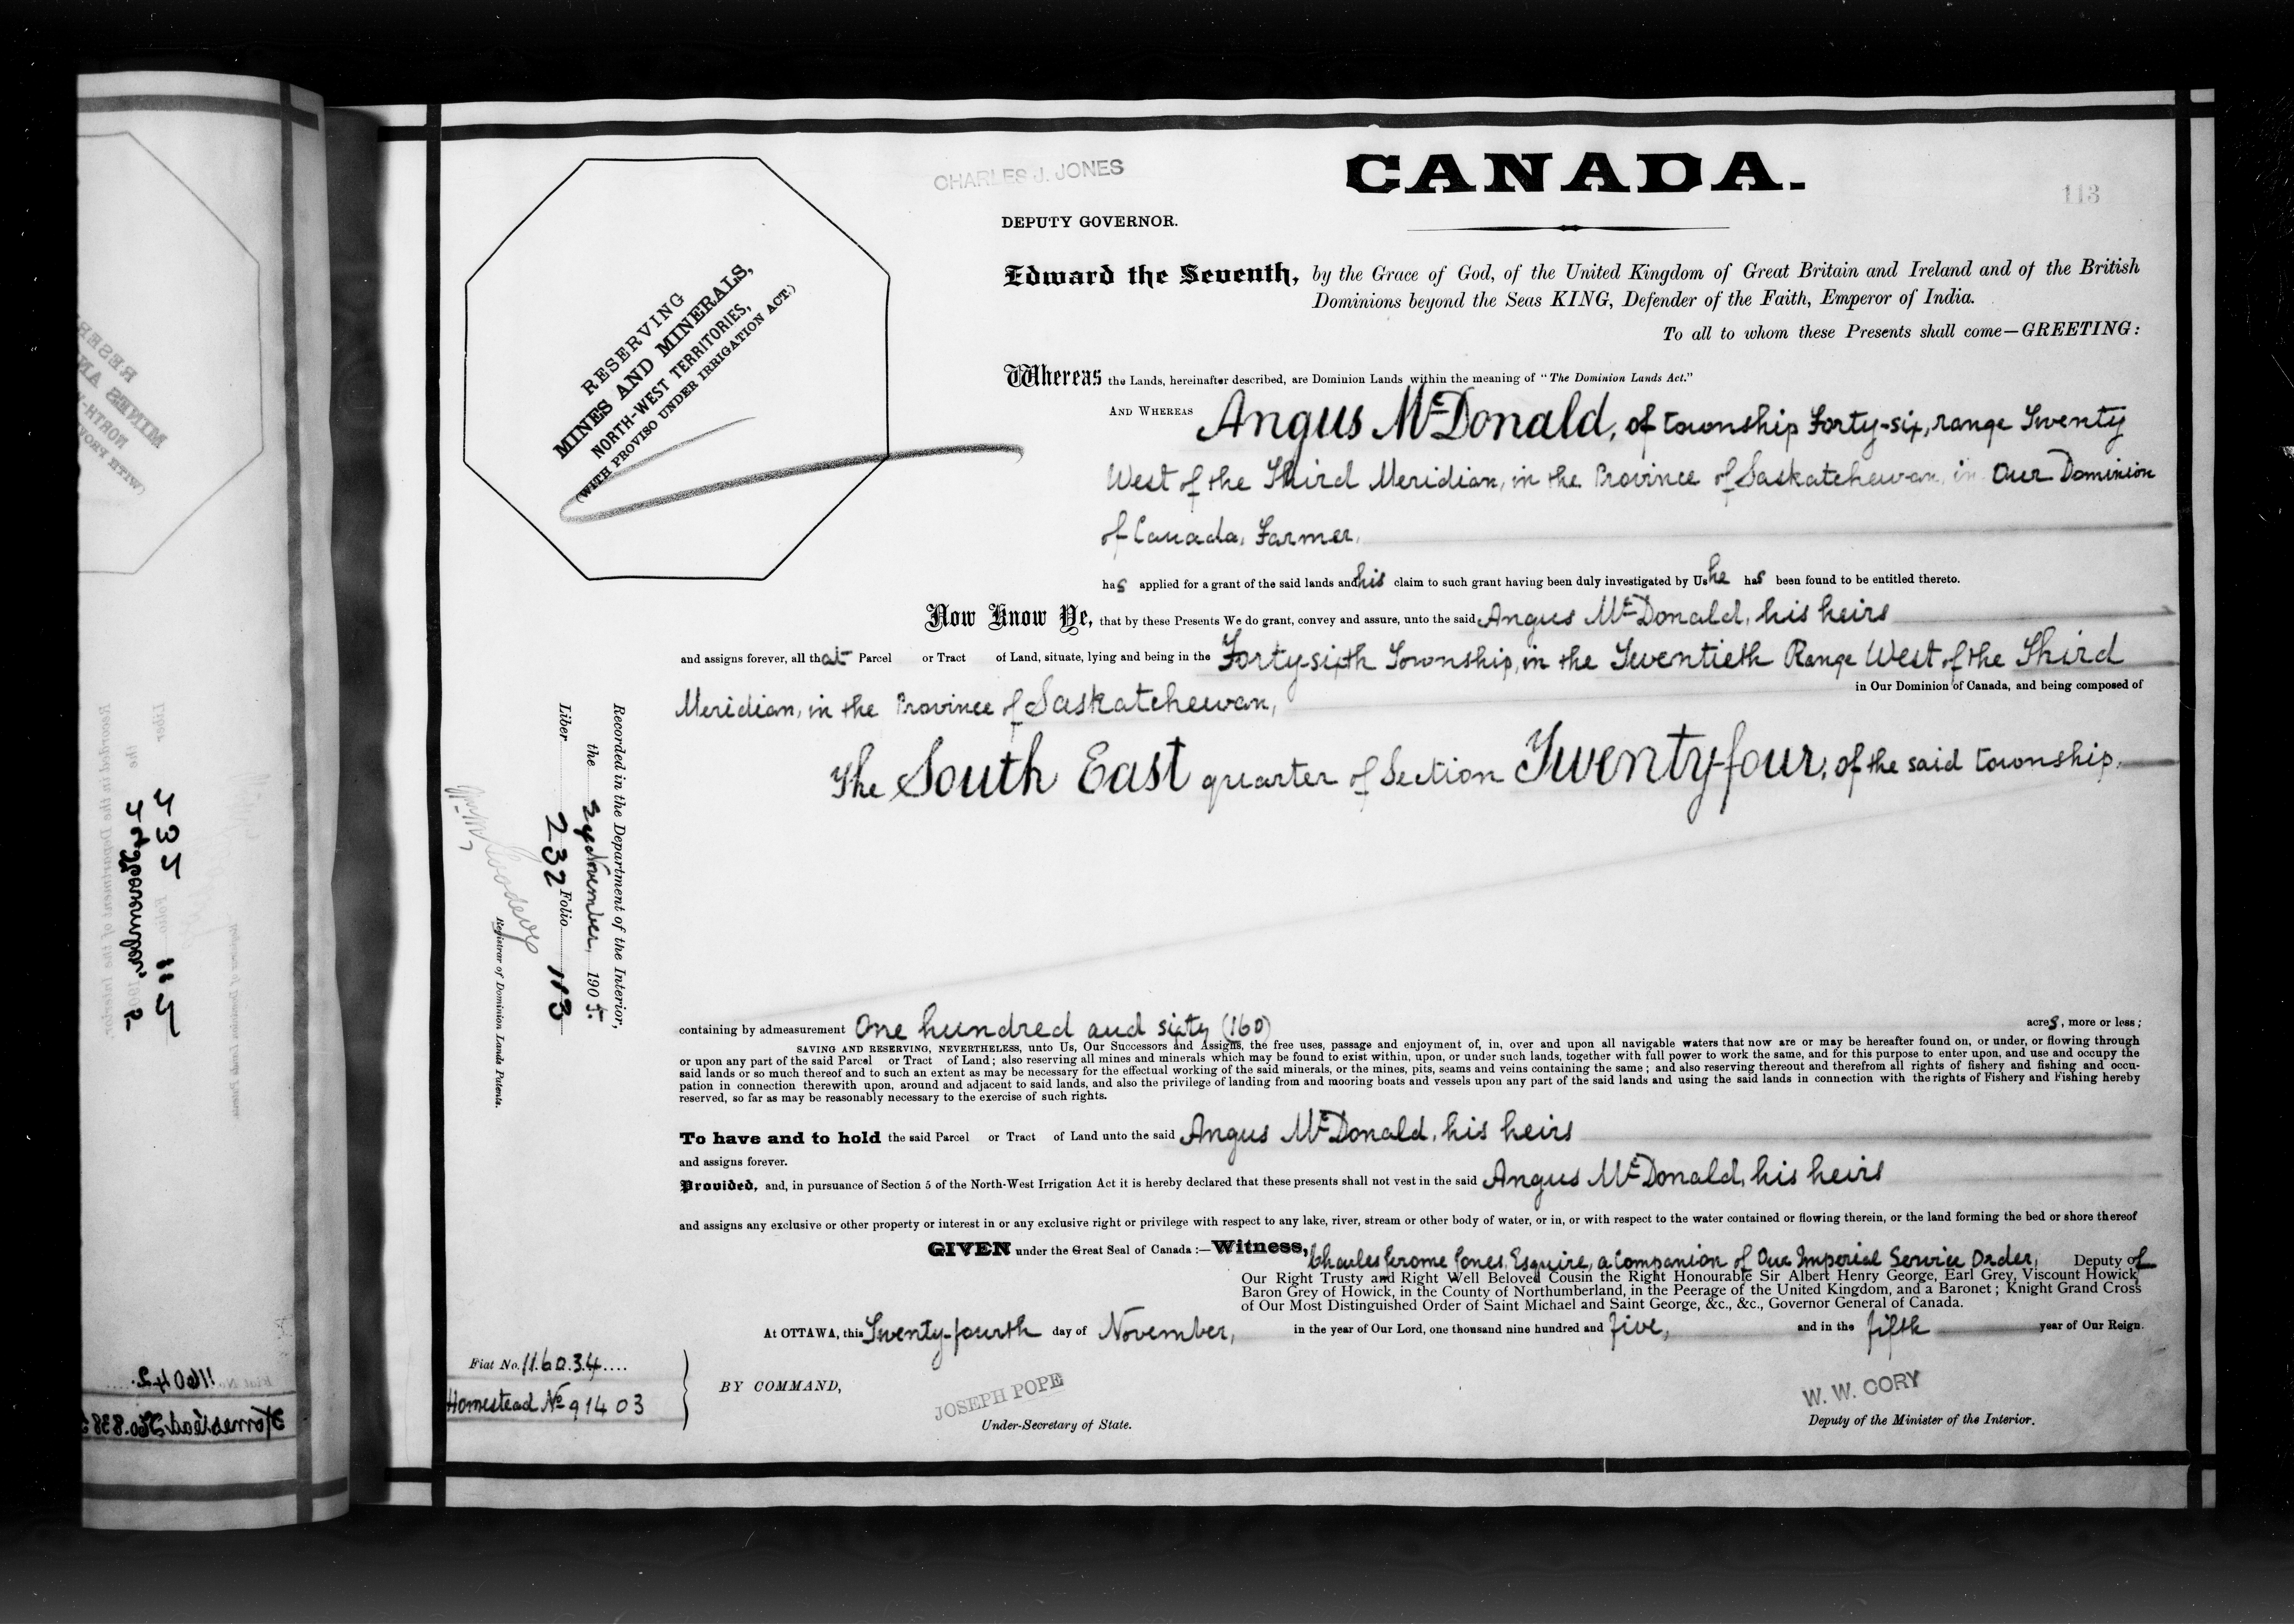 CHARLES J. JONES
CANADA.
113
DEPUTY GOVERNOR.
RESERVING
MINES AND MINERALS,
NORTH-WEST TERRITORIES,
(WITH PROVISO UNDER IRRIGATION ACT.)
Edward the Seventh, by the Grace of God, of the United Kingdom of Great Britain and Ireland and of the British
Dominions beyond the Seas KING, Defender of the Faith, Emperor of India.
To all to whom these Presents shall come—GREETING:
Whereas the Lands, hereinafter described, are Dominion Lands within the meaning of "The Dominion Lands Act."
AND WHEREAS Angus McDonald, of township Forty-six, range Twenty
West of the Third Meridian, in the Province of Saskatchewan, in Our Dominion
of Canada, Farmer,
has applied for a grant of the said lands and his claim to such grant having been duly investigated by Us he has been found to be entitled thereto.
Now Know Ye, that by these Presents We do grant, convey and assure, unto the said Angus McDonald, his heirs
and assigns forever, all that Parcel or Tract of Land, situate, lying and being in the Forty-sixth Township, in the Twentieth Range West of the Third
Meridian, in the Province of Saskatchewan,
in Our Dominion of Canada, and being composed of
The South East quarter of Section Twenty-four, of the said township.
Recorded in the Department of the Interior,
the November, 1905.
Liber 232 Folio 113
Registrar of Dominion Lands Patents.
containing by admeasurement One hundred and sixty (160) acres, more or less;
SAVING AND RESERVING, NEVERTHELESS, unto Us, Our Successors and Assigns, the free uses, passage and enjoyment of, in, over and upon all navigable waters that now are or may be hereafter found on, or under, or flowing through
or upon any part of the said Parcel or Tract of Land; also reserving all mines and minerals which may be found to exist within, upon, or under such lands, together with full power to work the same, and for this purpose to enter upon, and use and occupy the
said lands or so much thereof and to such an extent as may be necessary for the effectual working of the said minerals, or the mines, pits, seams and veins containing the same; and also reserving thereout and therefrom all rights of fishery and fishing and occu-
pation in connection therewith upon, around and adjacent to said lands, and also the privilege of landing from and mooring boats and vessels upon any part of the said lands and using the said lands in connection with the rights of Fishery and Fishing hereby
reserved, so far as may be reasonably necessary to the exercise of such rights.
To have and to hold the said Parcel or Tract of Land unto the said Angus McDonald, his heirs
and assigns forever.
Provided, and, in pursuance of Section 5 of the North-West Irrigation Act it is hereby declared that these presents shall not vest in the said Angus McDonald, his heirs
and assigns any exclusive or other property or interest in or any exclusive right or privilege with respect to any lake, river, stream or other body of water, or in, or with respect to the water contained or flowing therein, or the land forming the bed or shore thereof
GIVEN under the Great Seal of Canada :—Witness, Charles Jerome Jones, Esquire, a Companion of Our Imperial Service Order, Deputy of
Our Right Trusty and Right Well Beloved Cousin the Right Honourable Sir Albert Henry George, Earl Grey, Viscount Howick,
Baron Grey of Howick, in the County of Northumberland, in the Peerage of the United Kingdom, and a Baronet; Knight Grand Cross
of Our Most Distinguished Order of Saint Michael and Saint George, &c., &c., Governor General of Canada.
At OTTAWA, this Twenty-fourth day of November, in the year of Our Lord, one thousand nine hundred and five, and in the fifth year of Our Reign.
Fiat No. 116034
Homestead No 91403
BY COMMAND,
JOSEPH POPE
Under-Secretary of State.
W. W. CORY
Deputy of the Minister of the Interior.